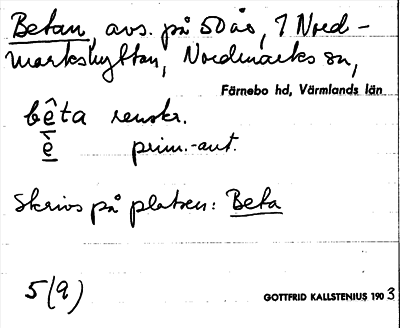 Betan, avs. på 50 år, 1 Nord-
markshyttan, Nordmarks sn,
Färnebo hd, Värmlands län
bêta renskr.
è prim.-aut.
Skrivs på platsen: Beta
5(9)
GOTTFRID KALLSTENIUS 1903